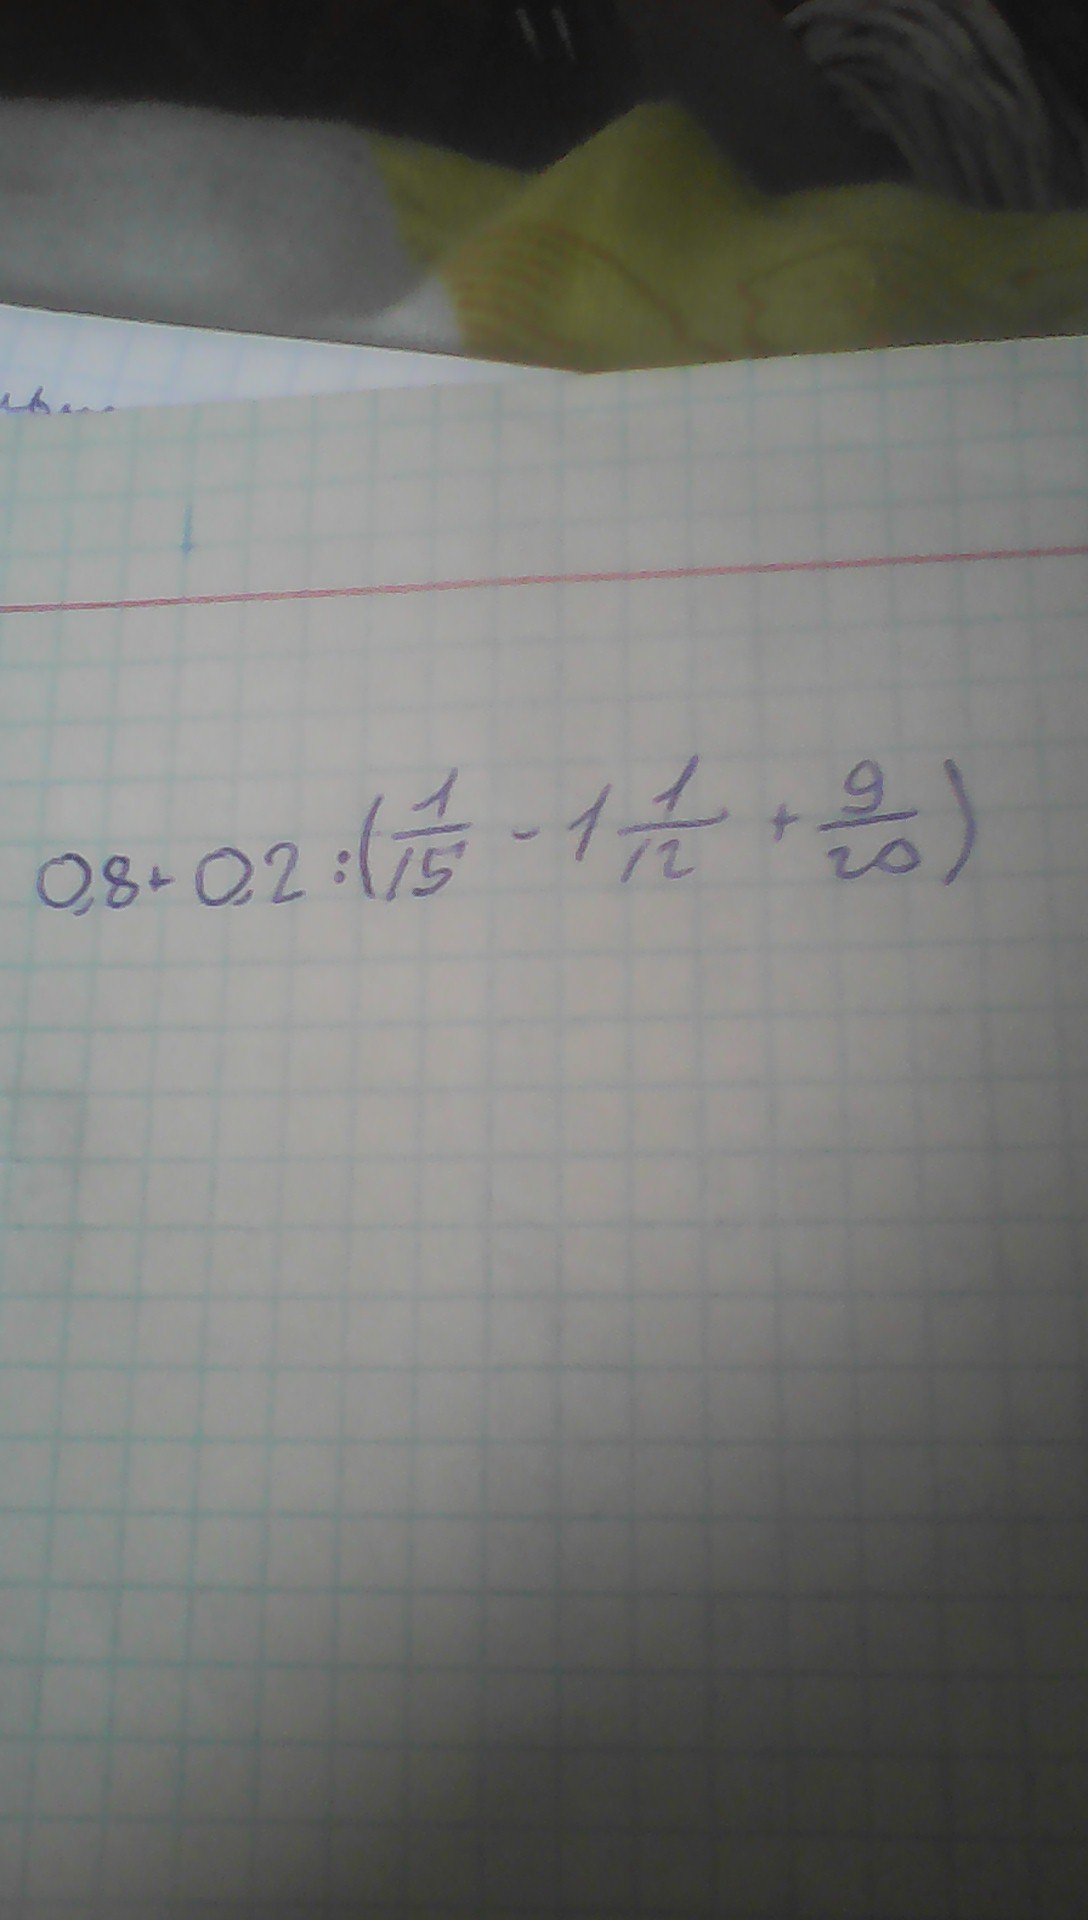 0,8+0,2:(1/15 - 1 1/12 + 9/20)